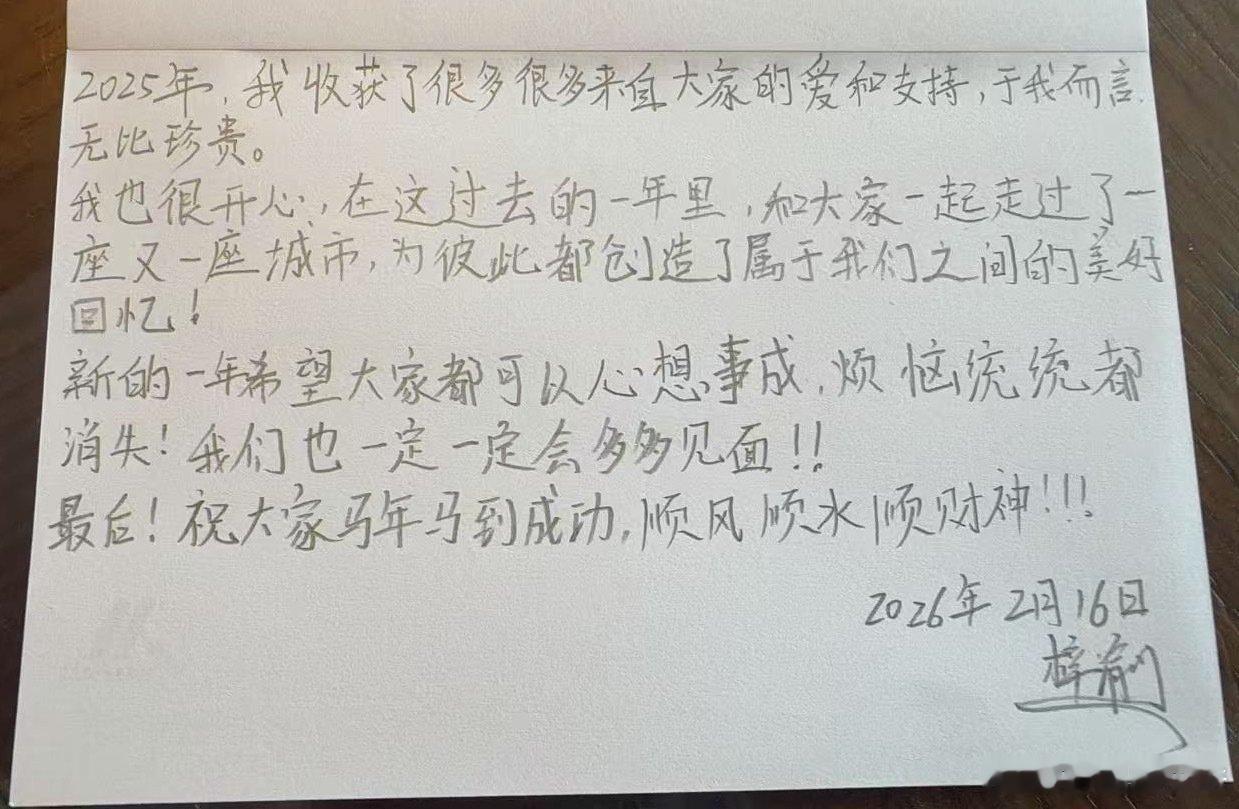 2025年，我收获了很多很多来自大家的爱和支持，于我而言
无比珍贵。
我也很开心，在这过去的一年里，和大家一起走过了一
座又一座城市，为彼此都创造了属于我们之间的美好
回忆！
新的一年希望大家都可以心想事成，烦恼统统都
消失！我们也一定一定会多多见面！！
最后！祝大家马年马到成功，顺风顺水顺财神！！！
2026年2月16日
梓渝